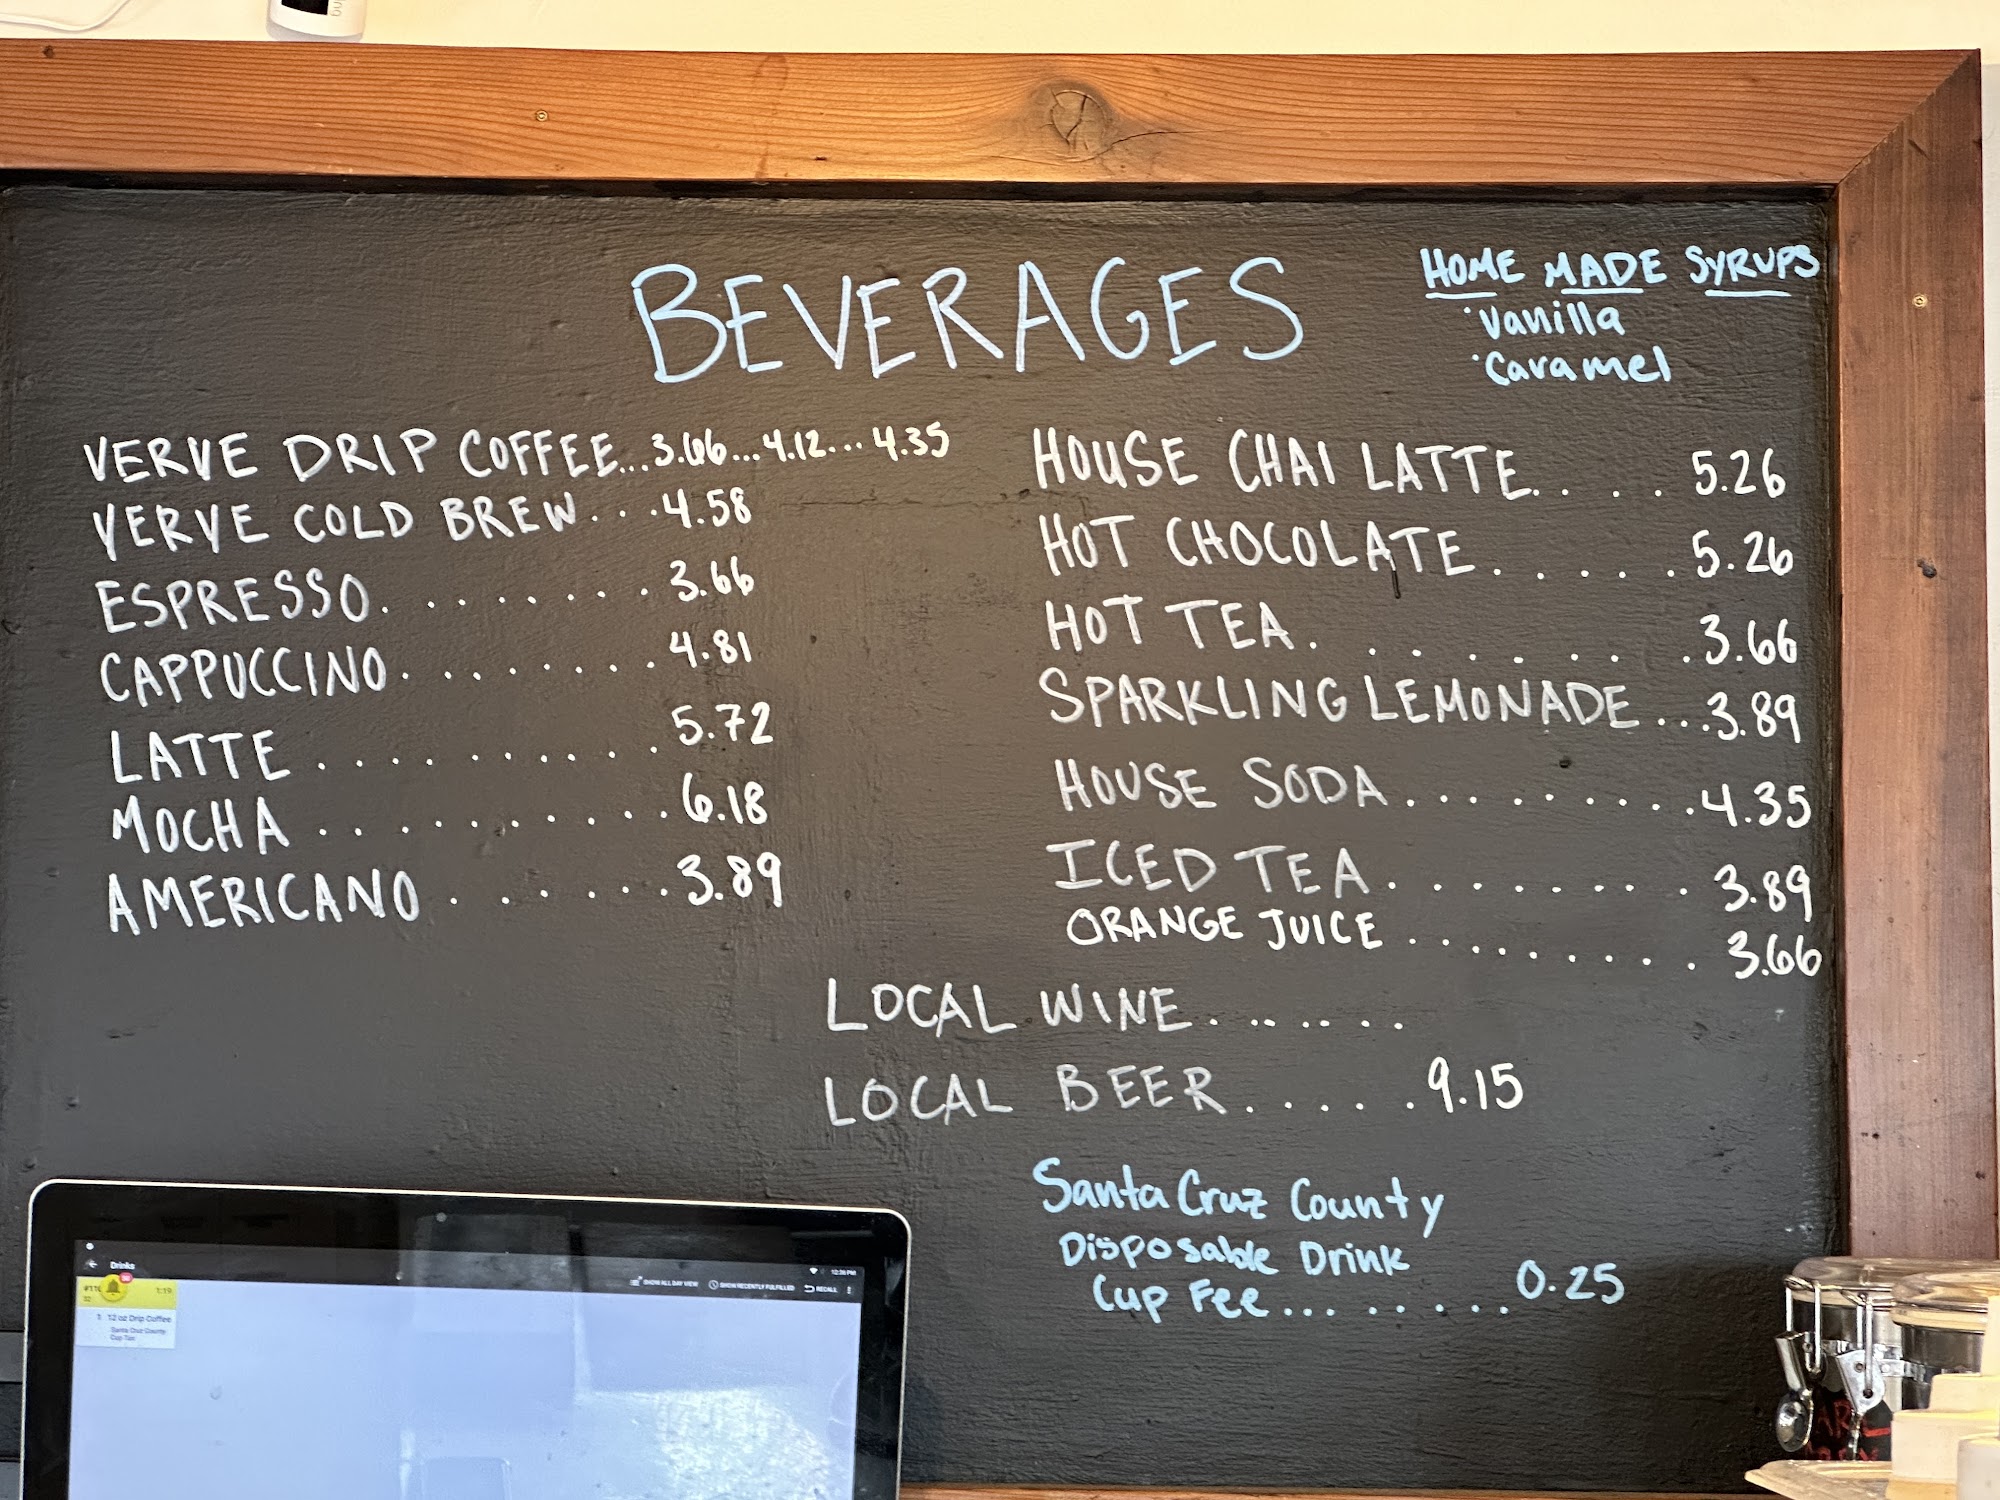 BEVERAGES
HOME MADE SYRUPS
·Vanilla
·Caramel
VERVE DRIP COFFEE...3.66...4.12...4.35
VERVE COLD BREW...4.58
ESPRESSO.........3.66
CAPPUCCINO........4.81
LATTE..........5.72
MOCHA...........6.18
AMERICANO.......3.89
HOUSE CHAI LATTE....5.26
HOT CHOCOLATE.....5.26
HOT TEA........3.66
SPARKLING LEMONADE...3.89
HOUSE SODA.........4.35
ICED TEA........3.89
ORANGE JUICE........3.66
LOCAL WINE.......
LOCAL BEER.....9.15
Santa Cruz County
Disposable Drink
Cup Fee........0.25
Drinks
12:36 PM
SHOW ALL DAY VIEW SHOW RECENTLY FULFILLED RECALL
1:19
1 12 oz Drip Coffee
Santa Cruz County
Cup Tax